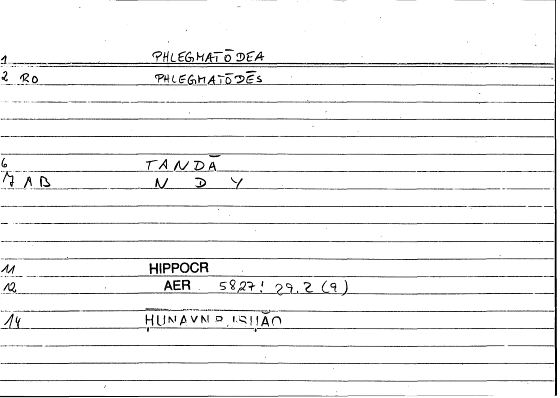 1 PHLEGMATŌDEA
2 RO PHLEGMATŌDĒS
6 TANDĀ
7 AB N D Y
11 HIPPOCR
12 AER 5827! 29.2 (9)
14